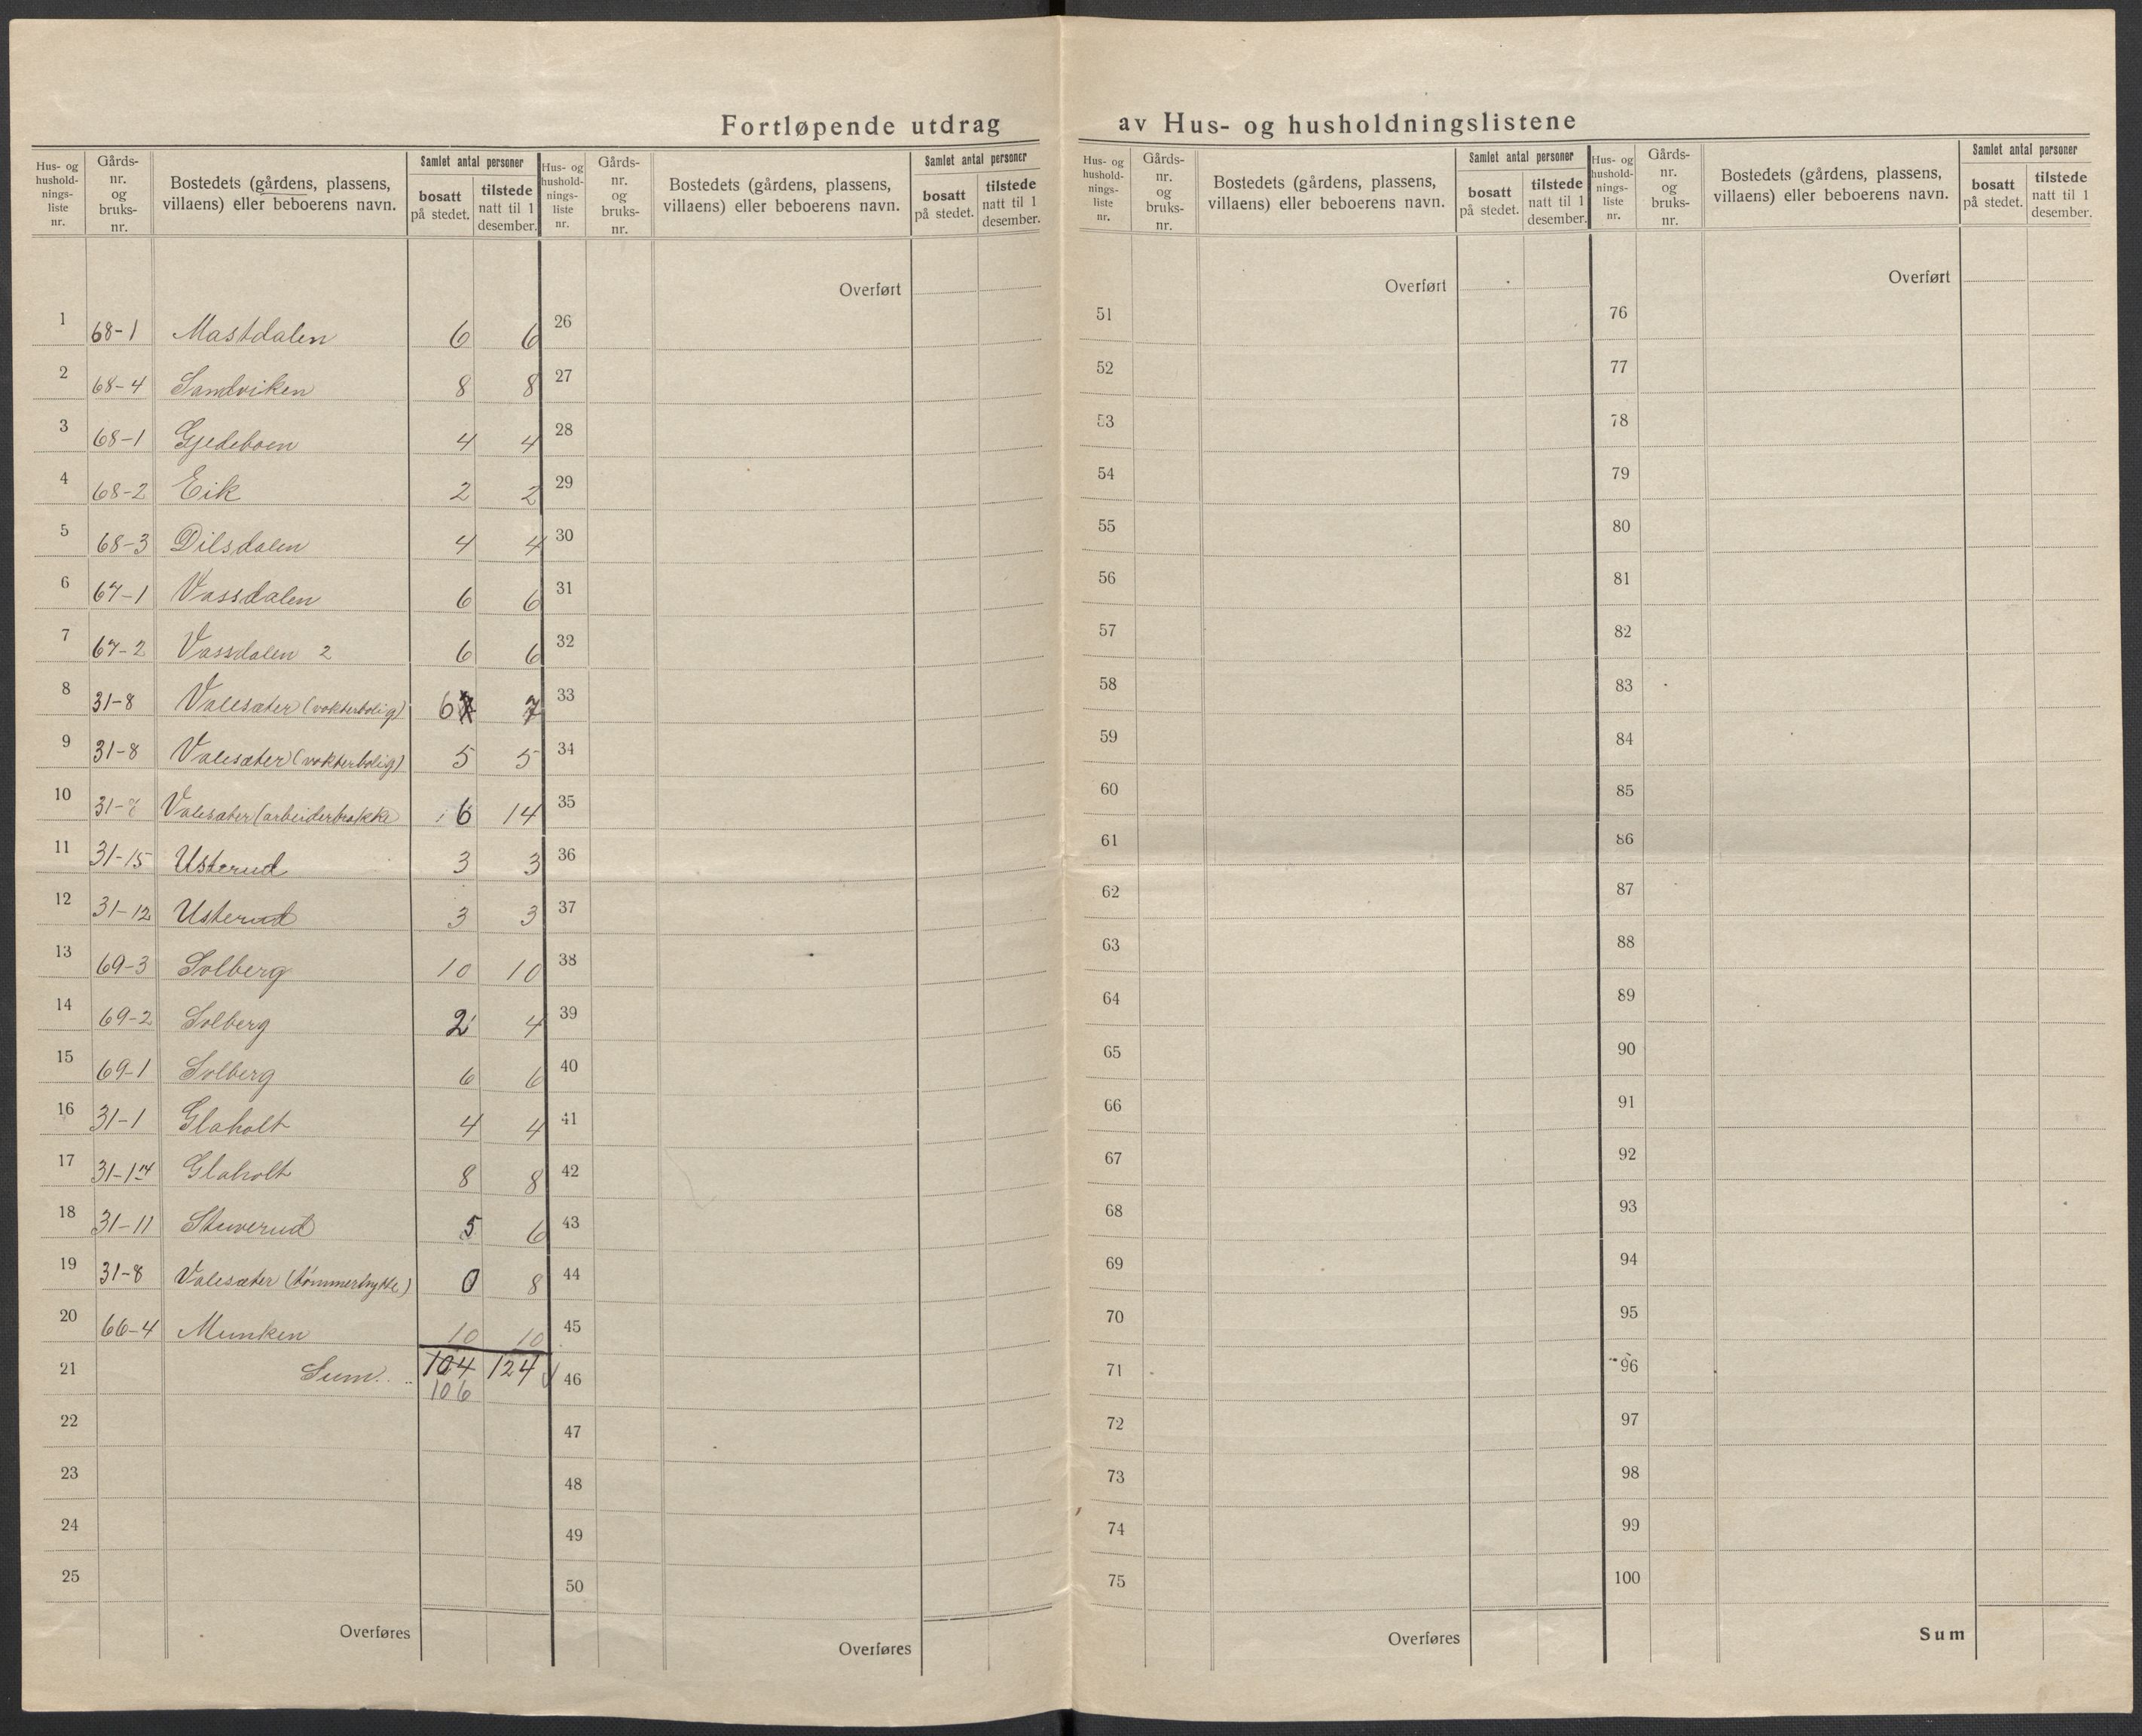 Fortløpende utdrag av Hus- og husholdningslistene
Hus- og hushold-nings-liste nr. | Gårds-nr. og bruks-nr. | Bostedets (gårdens, plassens, villaens) eller beboerens navn. | Samlet antal personer bosatt på stedet. | tilstede natt til 1 desember.
1 68-1 Mastdalen 6 6
2 68-4 Sandviken 8 8
3 68-1 Gjedeboen 4 4
4 68-2 Eik 2 2
5 68-3 Dilsdalen 4 4
6 67-1 Vassdalen 6 6
7 67-2 Vassdalen 2 6 6
8 31-8 Valesæter (vokterbolig) 6 7
9 31-8 Valesæter (vokterbolig) 5 5
10 31-8 Valesæter (arbeiderbrakke 6 14
11 31-15 Usterud 3 3
12 31-12 Usterud 3 3
13 69-3 Solberg 10 10
14 69-2 Solberg 2 4
15 69-1 Solberg 6 6
16 31-1 Glaholt 4 4
17 31-14 Glaholt 8 8
18 31-11 Stuverud 5 6
19 31-8 Valesæter (tømmerhytte) 0 8
20 66-4 Munken 10 10
21 Sum. .. 104 124
106
22
23
24
25
Overføres
Hus- og hushold-nings-liste nr. | Gårds-nr. og bruks-nr. | Bostedets (gårdens, plassens, villaens) eller beboerens navn. | Samlet antal personer bosatt på stedet. | tilstede natt til 1 desember.
Overført
26
27
28
29
30
31
32
33
34
35
36
37
38
39
40
41
42
43
44
45
46
47
48
49
50
Overføres
Hus- og hushold-nings-liste nr. | Gårds-nr. og bruks-nr. | Bostedets (gårdens, plassens, villaens) eller beboerens navn. | Samlet antal personer bosatt på stedet. | tilstede natt til 1 desember.
Overført
51
52
53
54
55
56
57
58
59
60
61
62
63
64
65
66
67
68
69
70
71
72
73
74
75
Overføres
Hus- og hushold-nings-liste nr. | Gårds-nr. og bruks-nr. | Bostedets (gårdens, plassens, villaens) eller beboerens navn. | Samlet antal personer bosatt på stedet. | tilstede natt til 1 desember.
Overført
76
77
78
79
80
81
82
83
84
85
86
87
88
89
90
91
92
93
94
95
96
97
98
99
100
Sum